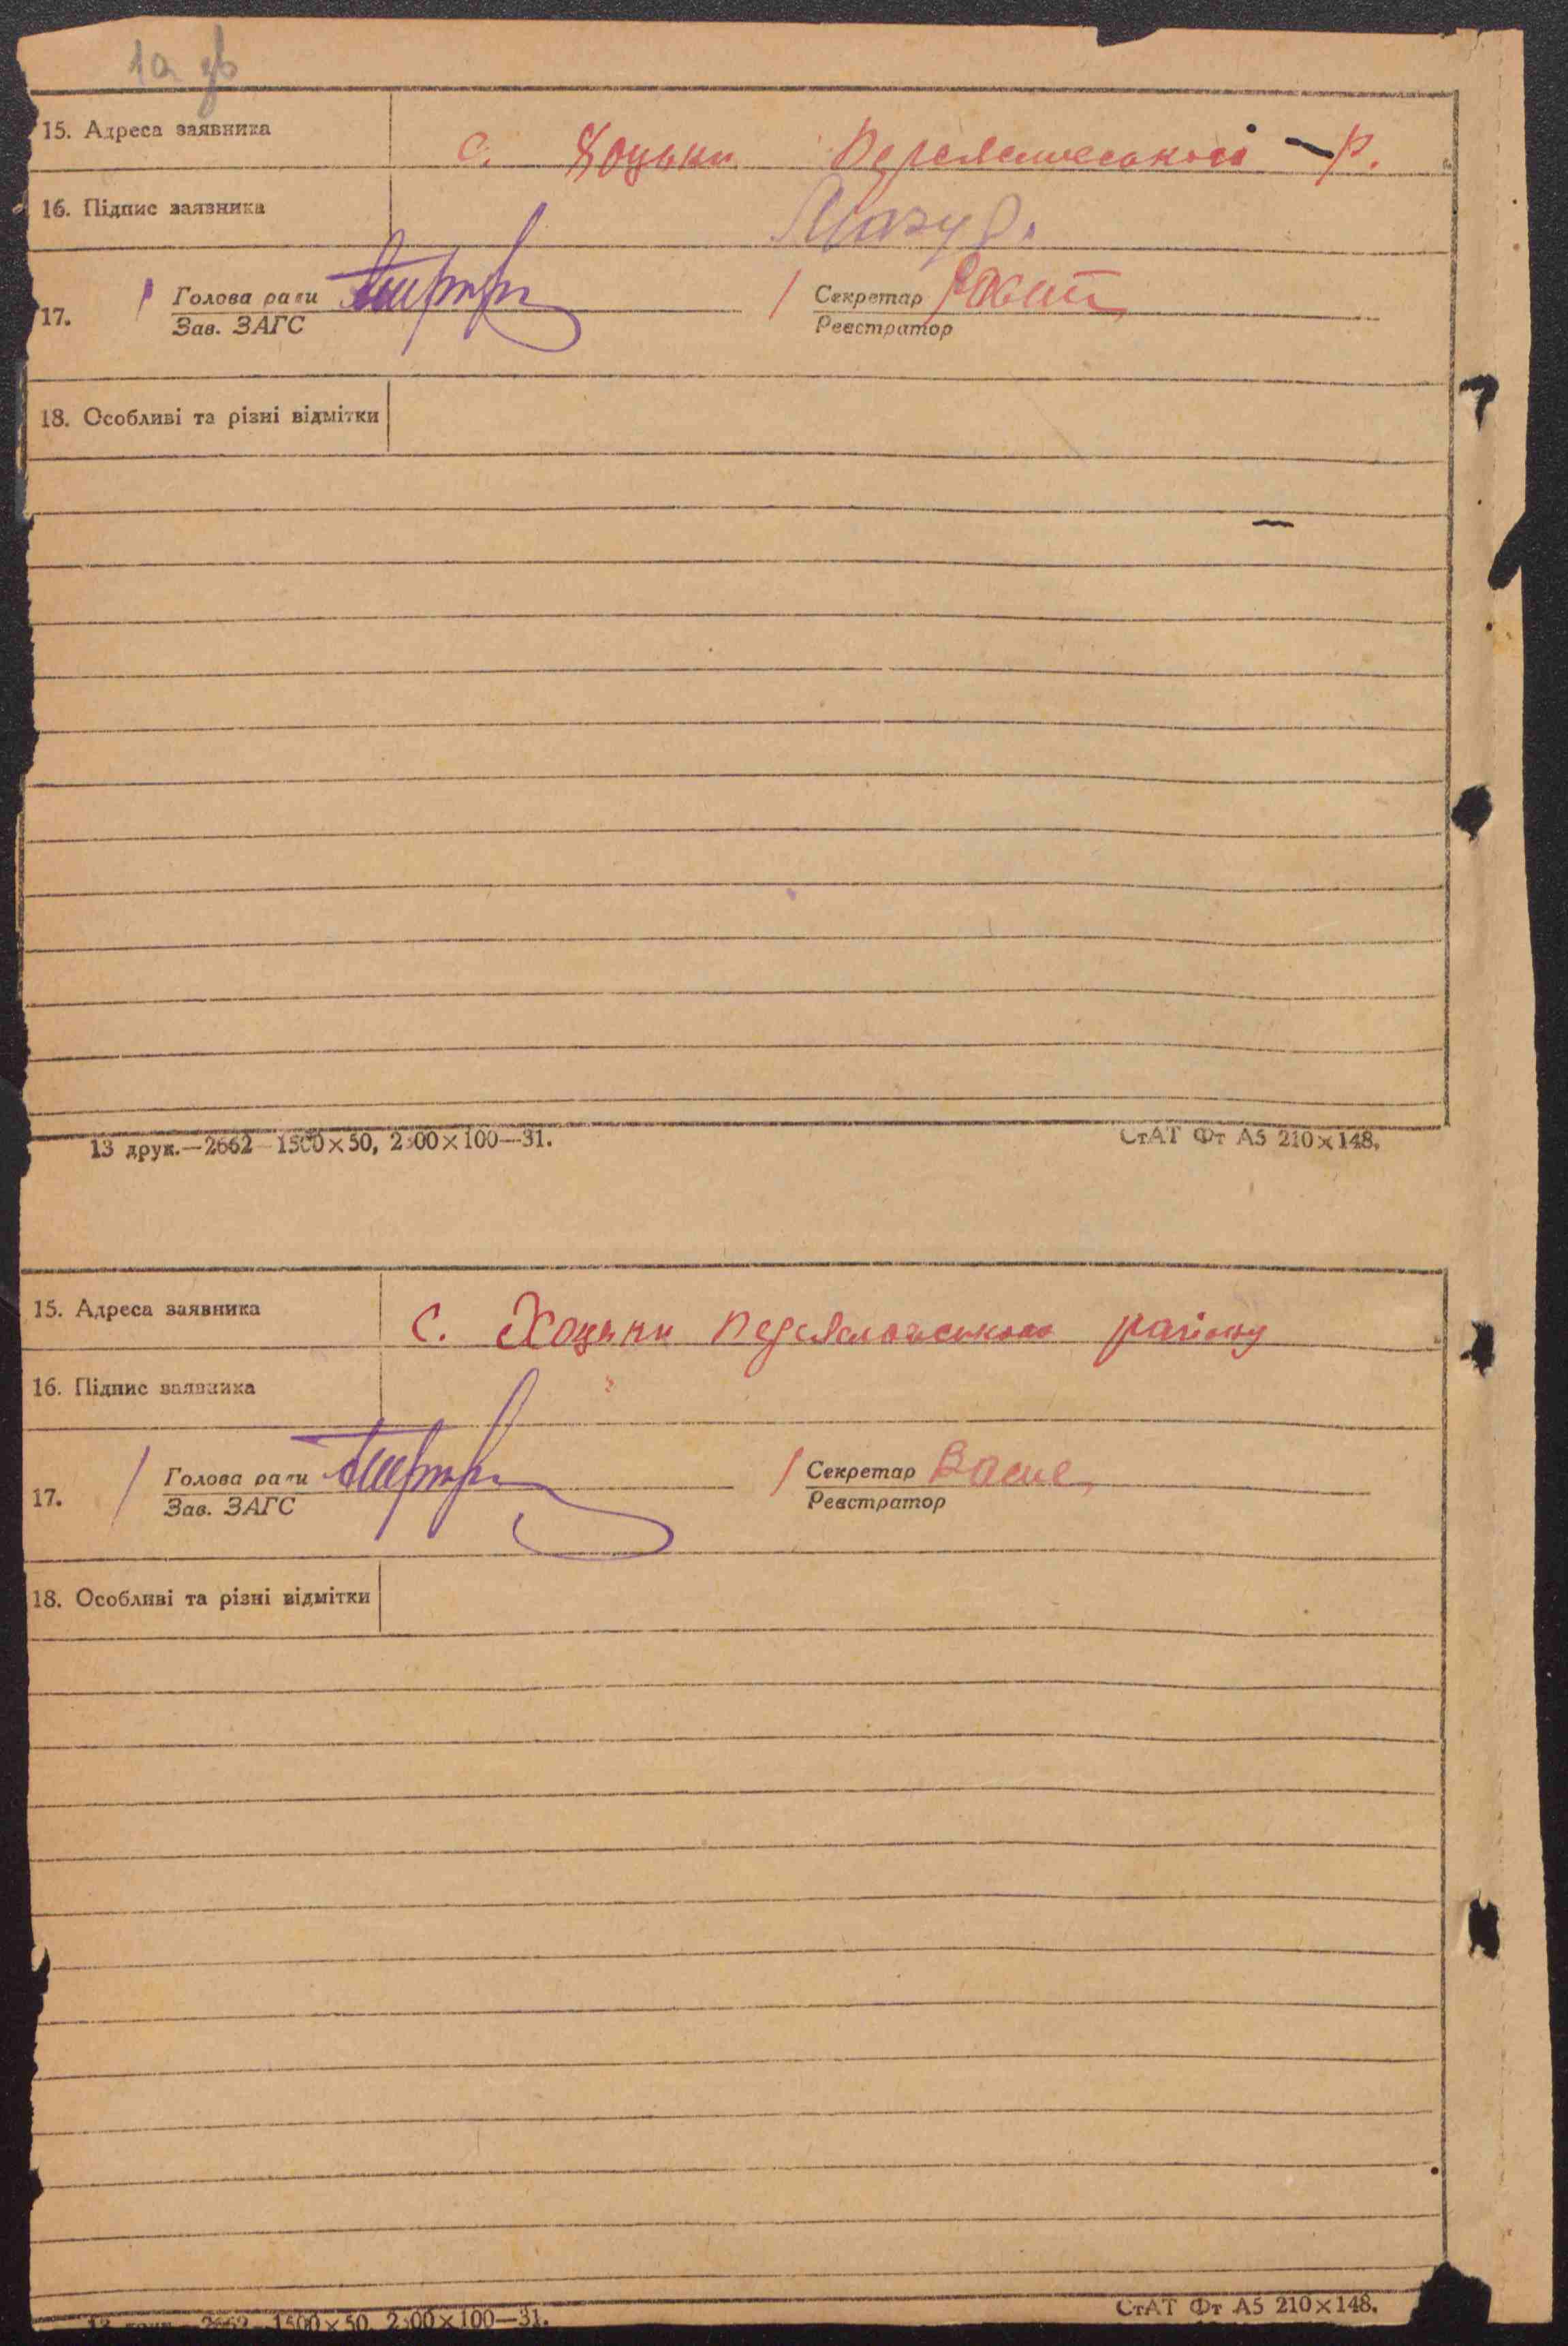 1а зв
15. Адреса заявника с. Хоцьки Переяславського р.
16. Підпис заявника Мазур.
17. Голова ради Секретар
Зав. ЗАГС Реєстратор
18. Особливі та різні відмітки
13 друк.—2662—1500×50, 2500×100—31. СтАТ Фт А5 210×148.
15. Адреса заявника с. Хоцьки Переяславського району
16. Підпис заявника
17. Голова ради Секретар
Зав. ЗАГС Реєстратор
18. Особливі та різні відмітки
13 друк.—2662—1500×50, 2500×100—31. СтАТ Фт А5 210×148.